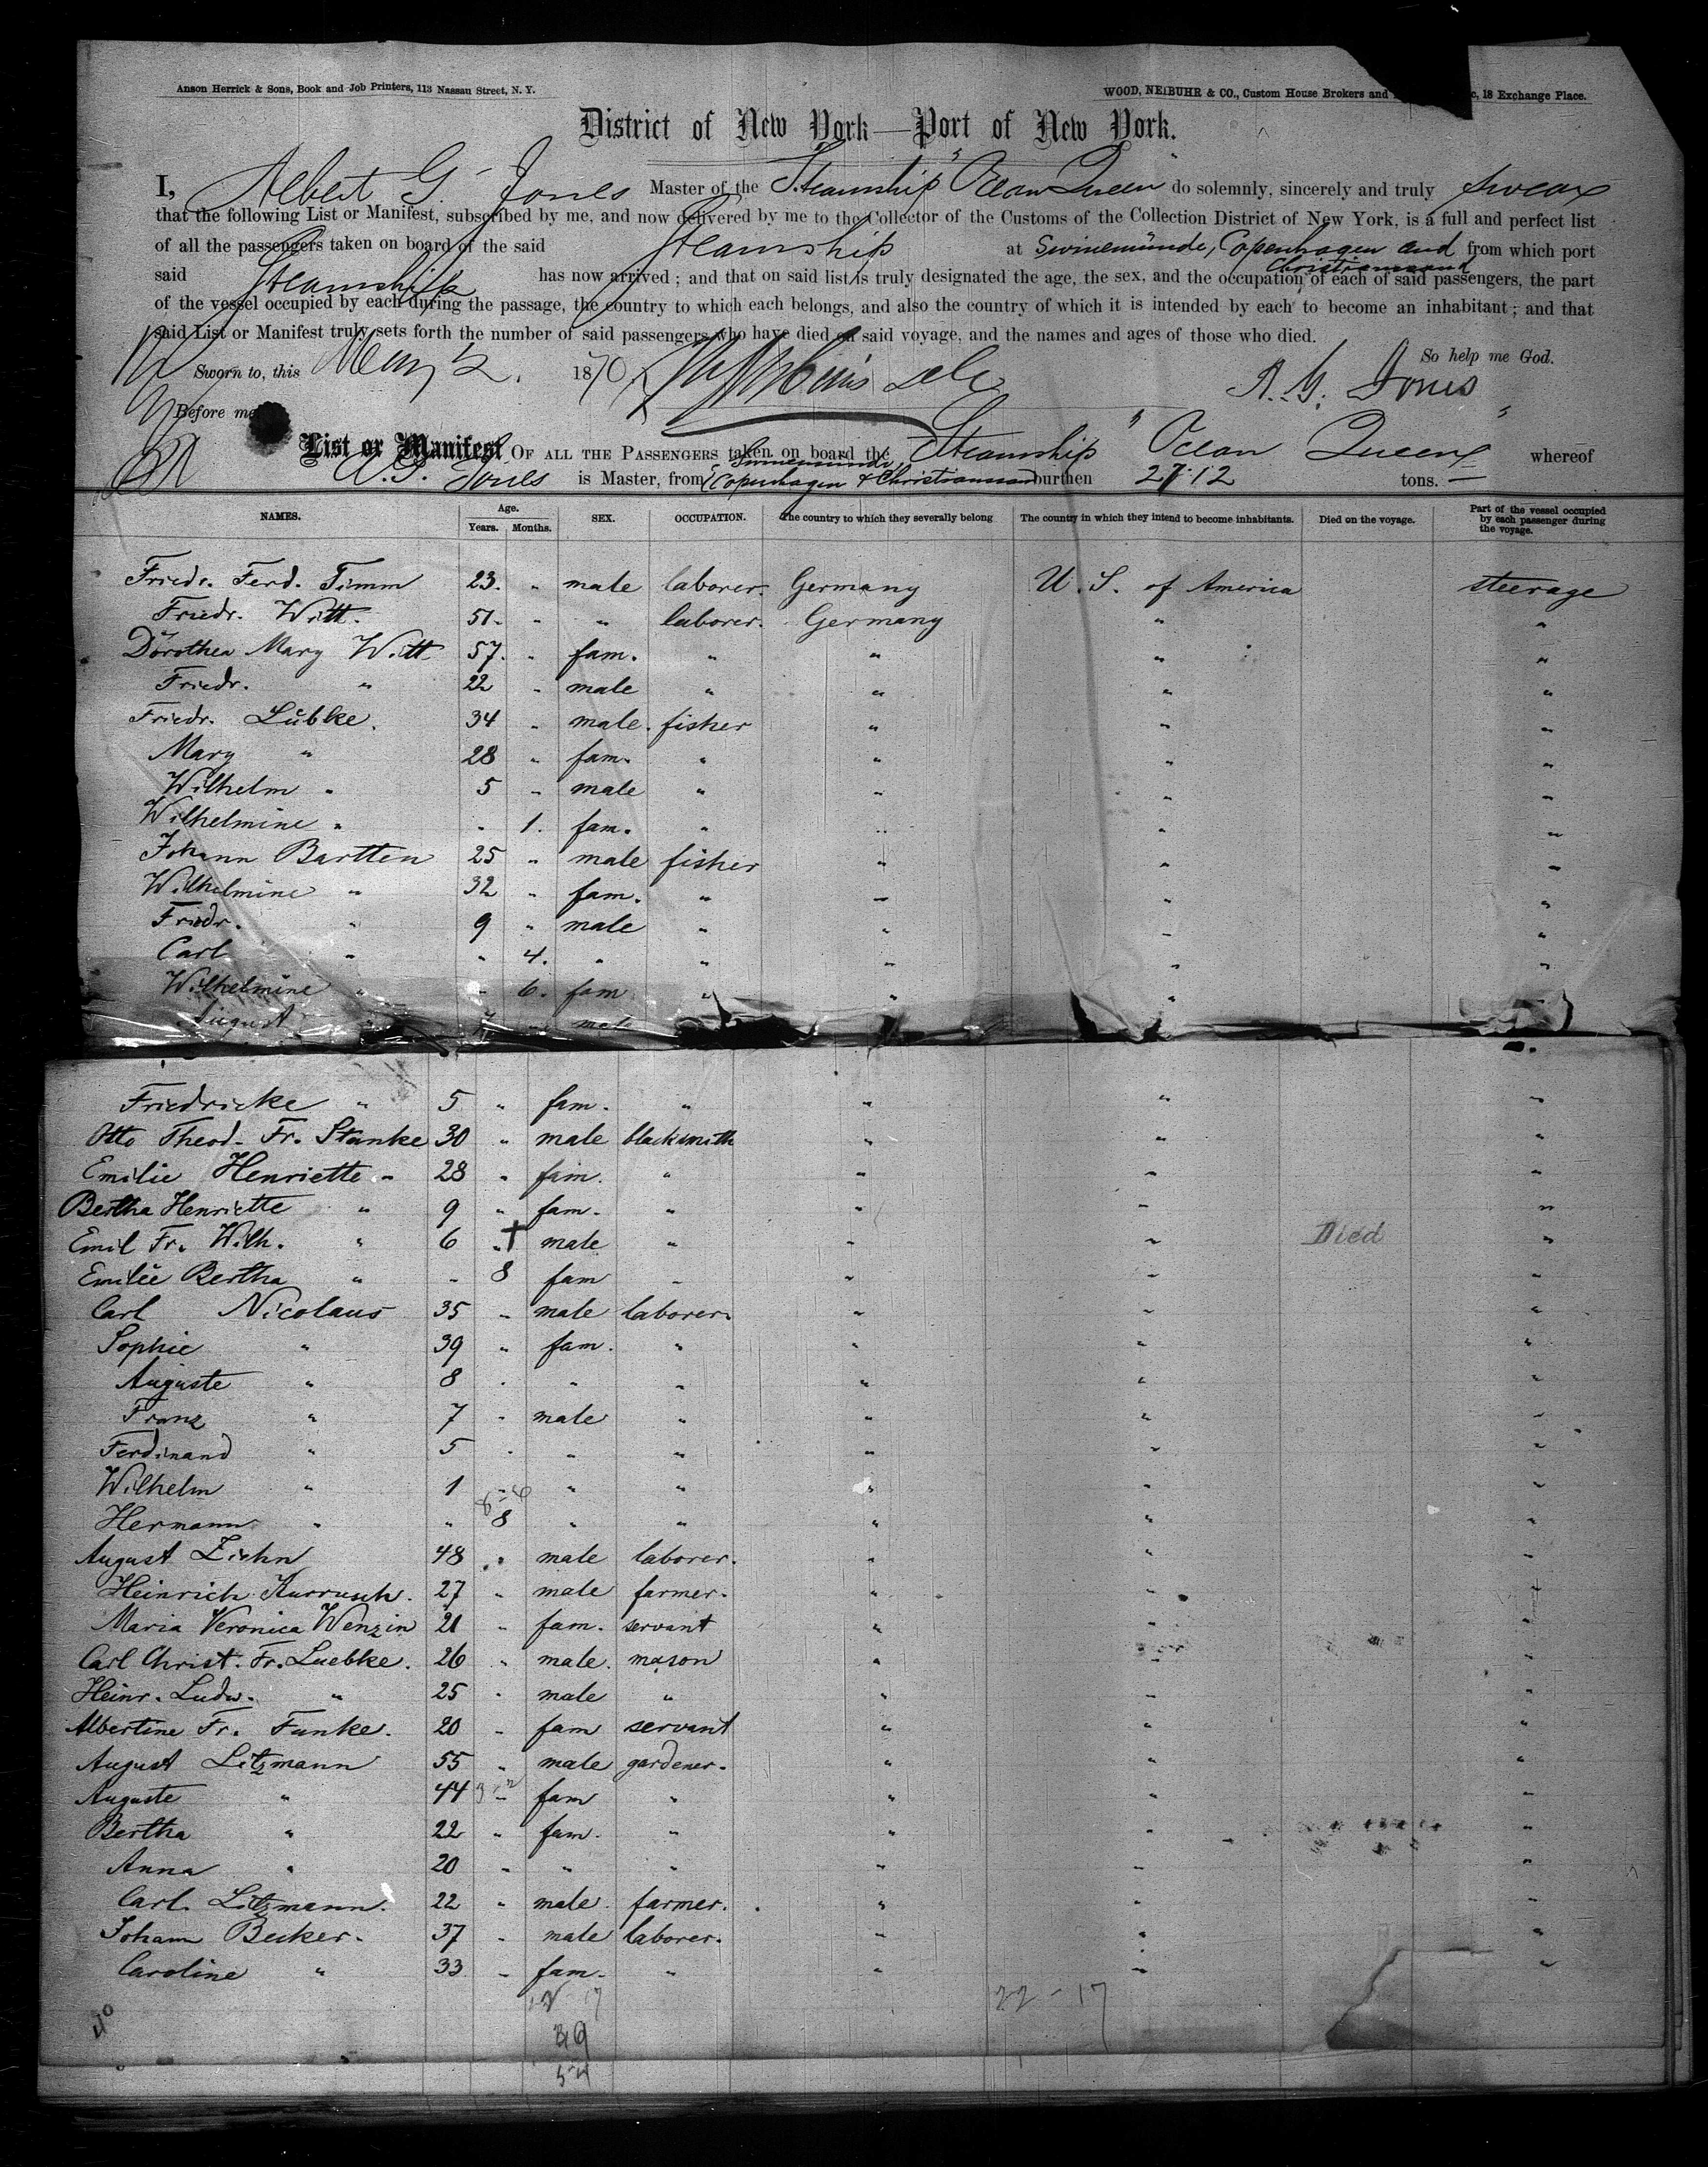 Anson Herrick & Sons, Book and Job Printers, 113 Nassau Street, N. Y.
WOOD, NEIBUHR & CO., Custom House Brokers and 18 Exchange Place.
District of New York—Port of New York.
I, Albert G. Jones Master of the Steamship "Ocean Queen" do solemnly, sincerely and truly swear
that the following List or Manifest, subscribed by me, and now delivered by me to the Collector of the Customs of the Collection District of New York, is a full and perfect list
of all the passengers taken on board of the said Steamship at Swinemünde, Copenhagen and Christiansand from which port
said Steamship has now arrived; and that on said list is truly designated the age, the sex, and the occupation of each of said passengers, the part
of the vessel occupied by each during the passage, the country to which each belongs, and also the country of which it is intended by each to become an inhabitant; and that
said List or Manifest truly sets forth the number of said passengers who have died on said voyage, and the names and ages of those who died.
So help me God.
Sworn to, this May 2. 1870. A. G. Jones
Before me
List or Manifest OF ALL THE PASSENGERS taken on board the Steamship "Ocean Queen" whereof
A. G. Jones is Master, from Swinemünde, Copenhagen & Christiansand burthen 2712 tons.
NAMES. Age. Years. Months. SEX. OCCUPATION. The country to which they severally belong The country in which they intend to become inhabitants. Died on the voyage. Part of the vessel occupied by each passenger during the voyage.
Friedr. Ferd. Timm 23. " male laborer. Germany U. S. of America steerage
Friedr. Witt. 51. " " laborer. Germany " "
Dorothea Mary Witt 57. " fam. " " " "
Friedr. " 22 " male " " " "
Friedr. Lübke. 34 " male. fisher " " "
Mary " 28 " fam. " " " "
Wilhelm " 5 " male " " " "
Wilhelmine " " 1. fam. " " " "
Johann Bartten 25 " male fisher " " "
Wilhelmine " 32 " fam. " " " "
Friedr. " 9 " male " " " "
Carl " " 4. " " " " "
Wilhelmine " " 6. fam " " " "
August " male
Friedricke " 5 " fam. " " " "
Otto Theod. Fr. Stanke 30 " male blacksmith " " "
Emilie Henriette " 28 " fam. " " " "
Bertha Henriette " 9 " fam. " " " "
Emil Fr. Wilh. " 6 " † male " " " Died "
Emilie Bertha " " 8 fam " " " "
Carl Nicolaus 35 " male laborer. " " "
Sophie " 39 " fam. " " " "
Auguste " 8 " " " " " "
Franz " 7 " male " " " "
Ferdinand " 5 " " " " " "
Wilhelm " 1 " " " " " "
Hermann " " 8 " " " " "
August Ziehn 48 " male laborer. " " "
Heinrich Kurrusch. 27 " male farmer. " " "
Maria Veronica Wenzin 21 " fam. servant " " "
Carl Christ. Fr. Luebke. 26 " male. mason " " "
Heinr. Ludw. " 25 " male " " " "
Albertine Fr. Funke. 20 " fam servant " " "
August Litzmann 55 " male gardener. " " "
Auguste " 44 " fam " " " "
Bertha " 22 " fam. " " " "
Anna " 20 " " " " " "
Carl. Litzmann. 22 " male farmer. " " "
Johann Becker. 37 " male laborer. " " "
Caroline " 33 " fam. " " " "
22 - 17
40
39
54